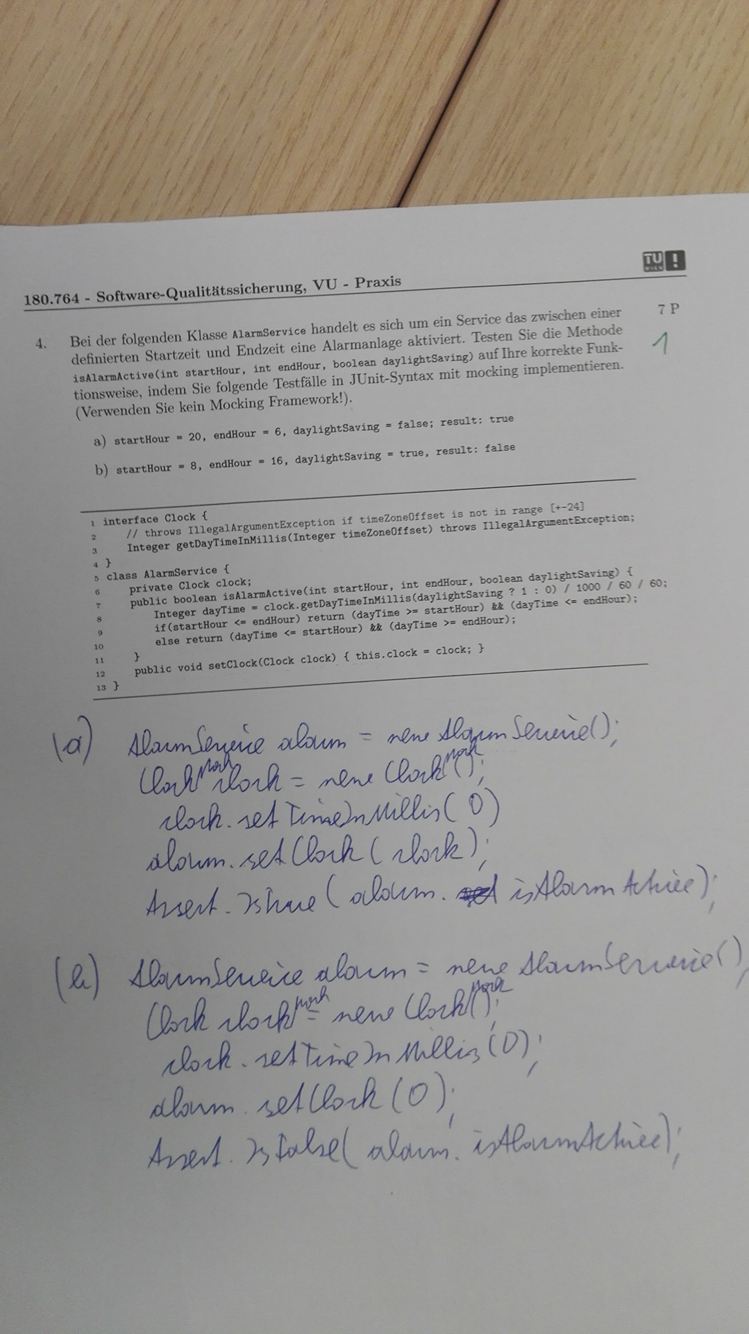 TU
WIEN
180.764 - Software-Qualitätssicherung, VU - Praxis
4. Bei der folgenden Klasse AlarmService handelt es sich um ein Service das zwischen einer 7 P
definierten Startzeit und Endzeit eine Alarmanlage aktiviert. Testen Sie die Methode 1
isAlarmActive(int startHour, int endHour, boolean daylightSaving) auf Ihre korrekte Funk-
tionsweise, indem Sie folgende Testfälle in JUnit-Syntax mit mocking implementieren.
(Verwenden Sie kein Mocking Framework!).
a) startHour = 20, endHour = 6, daylightSaving = false; result: true
b) startHour = 8, endHour = 16, daylightSaving = true, result: false
1 interface Clock {
2 // throws IllegalArgumentException if timeZoneOffset is not in range [+-24]
3 Integer getDayTimeInMillis(Integer timeZoneOffset) throws IllegalArgumentException;
4 }
5 class AlarmService {
6 private Clock clock;
7 public boolean isAlarmActive(int startHour, int endHour, boolean daylightSaving) {
8 Integer dayTime = clock.getDayTimeInMillis(daylightSaving ? 1 : 0) / 1000 / 60 / 60;
9 if(startHour <= endHour) return (dayTime >= startHour) && (dayTime <= endHour);
10 else return (dayTime <= startHour) && (dayTime >= endHour);
11 }
12 public void setClock(Clock clock) { this.clock = clock; }
13 }
(a) AlarmService alarm = new AlarmService();
ClockMock clock = new ClockMock();
clock.setTimeInMillis(0)
alarm.setClock(clock);
Assert.IsTrue(alarm. isAlarmActive);
(b) AlarmService alarm = new AlarmService();
Clock clockMock = new ClockMock();
clock.setTimeInMillis(0);
alarm.setClock(0);
Assert.IsFalse(alarm.isAlarmActive);